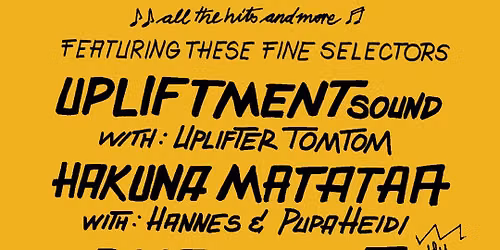 ♪♪ all the hits and more ♫
FEATURING THESE FINE SELECTORS
UPLIFTMENT SOUND
WITH: UPLIFTER TOMTOM
HAKUNA MATATAA
WITH: HANNES & PUPA HEIDI